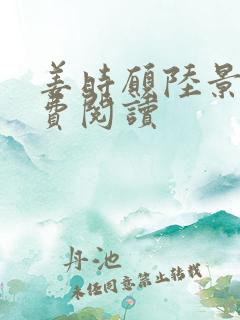 姜時願陸景
費閱讀
丹池
未经同意禁止转载